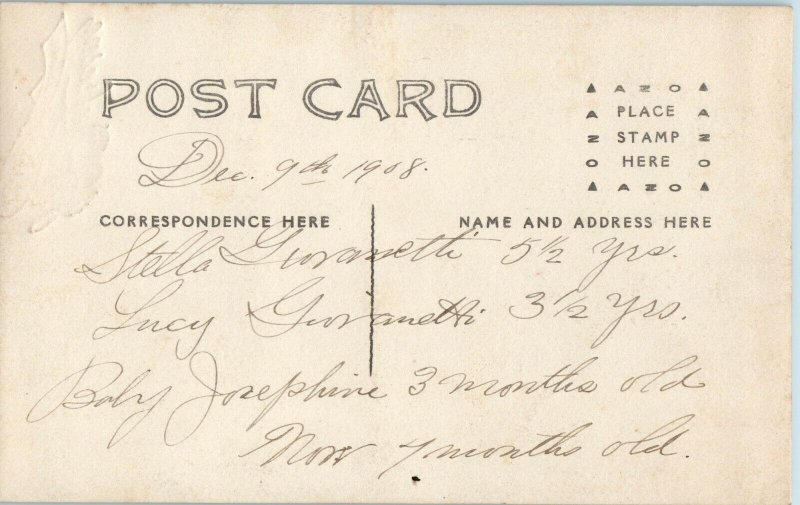 POST CARD
▲ A Z O ▲
A PLACE A
Z STAMP Z
O HERE O
▲ A Z O ▲
Dec. 9th 1908.
CORRESPONDENCE HERE
NAME AND ADDRESS HERE
Stella Giovanetti 5 1/2 yrs.
Lucy Giovanetti 3 1/2 yrs.
Baby Josephine 3 months old
Now 7 months old.